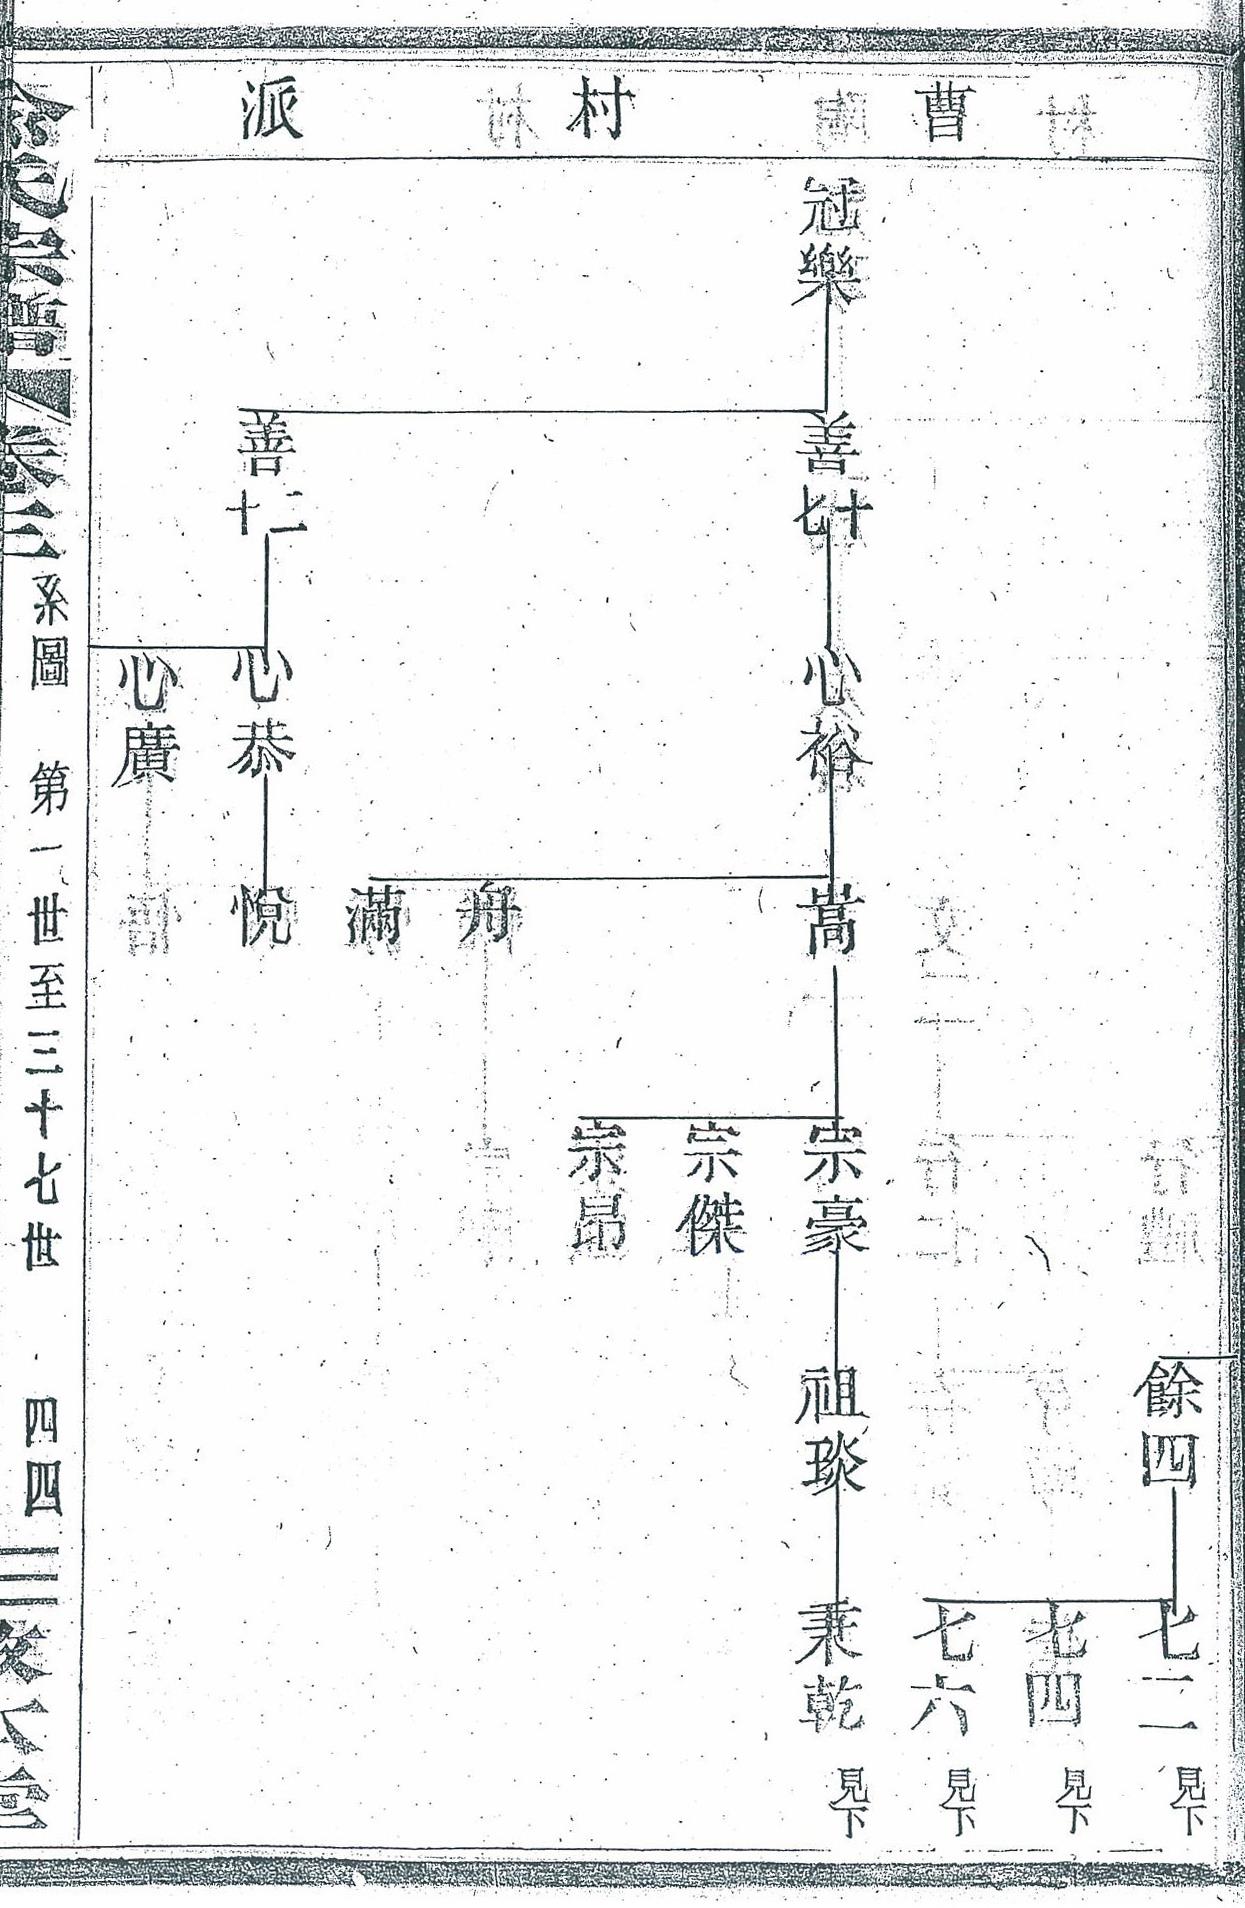 曹村派
餘四
七二 見下
七四 見下
七六 見下
冠樂
善十七
心裕
嵩
宗豪
祖琰
秉乾 見下
宗傑
宗昂
舟
滿
善十二
心恭
悅
心廣
卷三
系圖 第一世至三十七世 四四